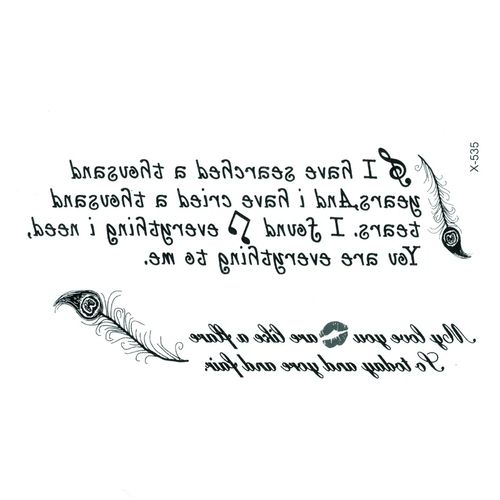 I have searched a thousand
years,And i have cried a thousand
tears. I found everything i need,
You are everything to me.
My love you are like a flare
So today and yore and fair.
X-535